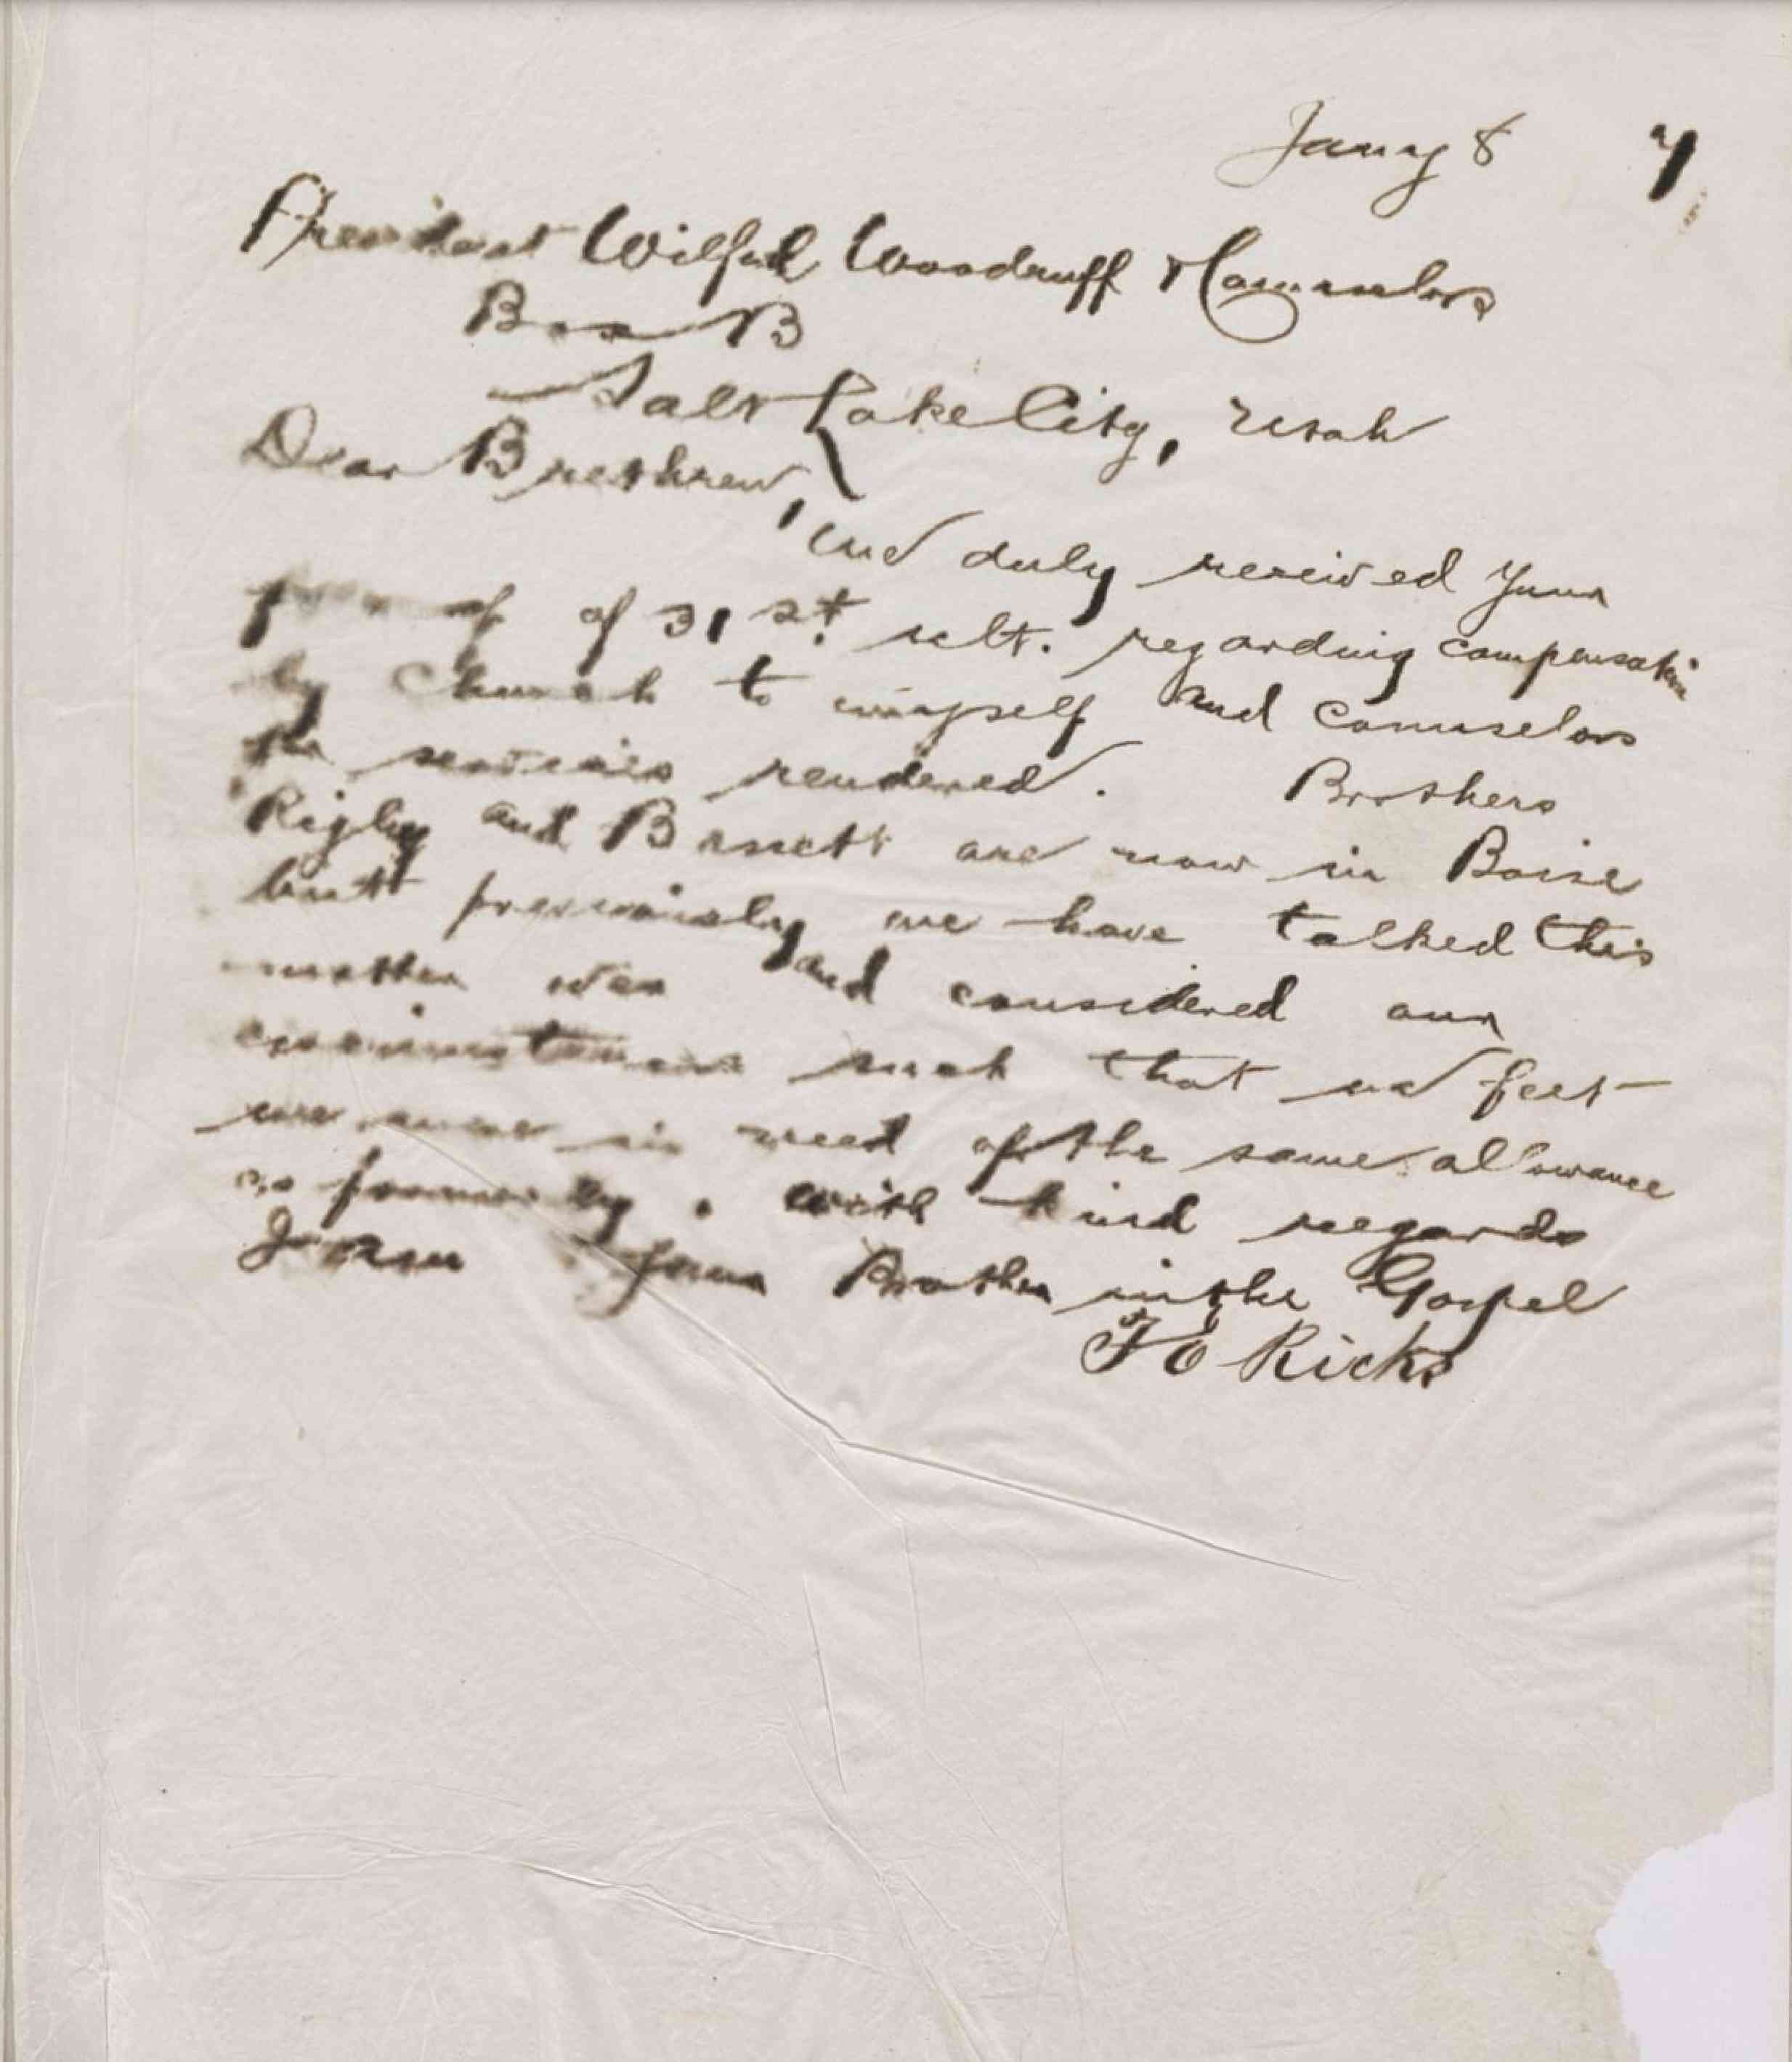 Jany 8 97
President Wilford Woodruff & Counselors
Box B
Salt Lake City, Utah
Dear Brethren,
we duly received your
favor of 31st. ult. regarding compensation
by Church to myself and Counselors
for services rendered. Brothers
Rigby and Bassett are now in Boise
but previously we have talked this
matter over and considered our
circumstances such that we felt
we were in need of the same allowance
as formerly. With kind regards
I remain Your Brother in the Gospel
T E Ricks